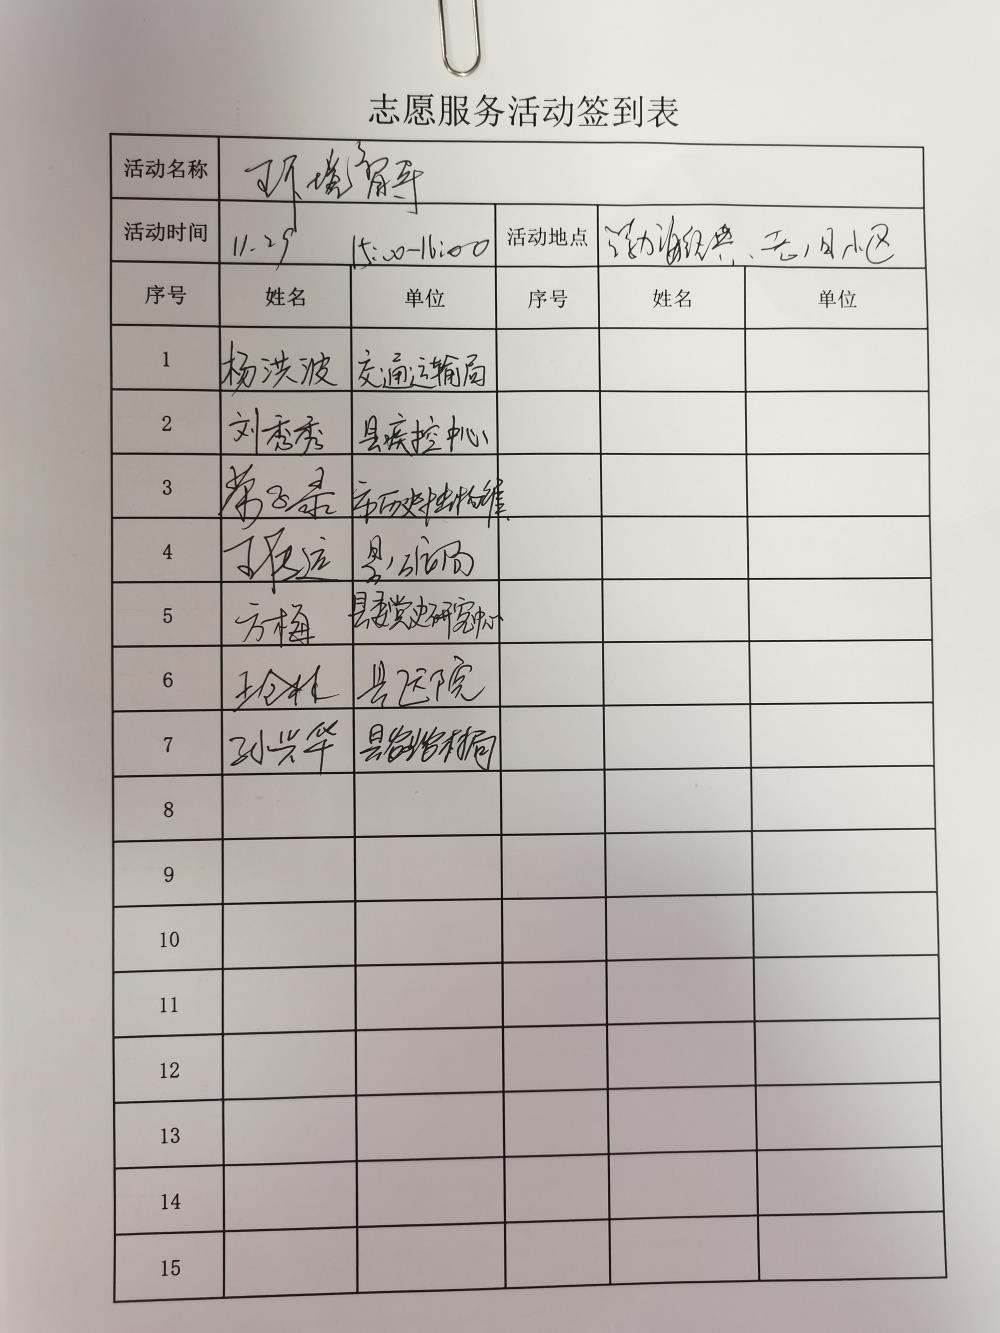 志愿服务活动签到表
活动名称 环境
活动时间 11.29 15:00-16:00 活动地点 小区
序号 姓名 单位 序号 姓名 单位
1 杨洪波 交通运输局
2 刘秀秀 县疾控中心
3
4
5 方梅 县委党史研究中心
6 县医院
7 孙兴华
8
9
10
11
12
13
14
15